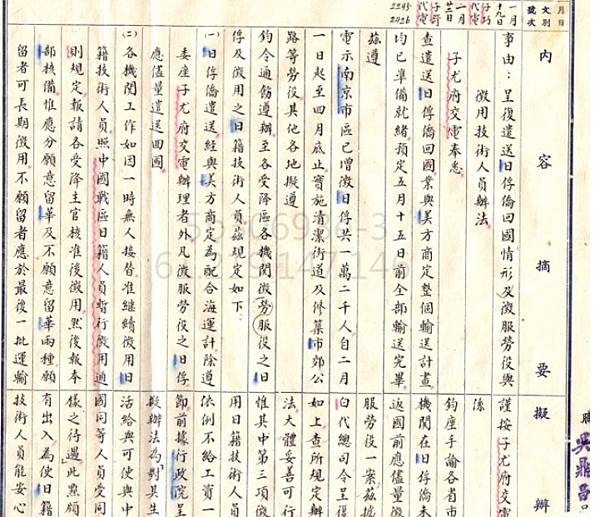 月日
文別
號次
一月
十九日
子巧
代電
一月
廿三日
子哿
代電
2245
2426
內容摘要
事由：呈復遣送日俘僑回國情形及徵服勞役與
徵用技術人員辦法
子尤府交電奉悉
查遣送日俘僑回國業與美方商定整個輸送計畫
均已準備就緒預定五月十五日前全部輸送完畢
茲遵
電示南京市區已增徵日俘共一萬二千人自二月
一日起至四月底止實施清潔街道及修築市郊公
路等勞役其他各地擬遵
鈞令通飭遵辦至各受降區各機關徵勞服役之日
俘及徵用之日籍技術人員茲規定如下：
㈠日俘僑遣送經與美方商定為配合海運計除遵
委座子尤府交電辦理者外凡徵服勞役之日俘
應儘量遣送回國
㈡各機關工作如因一時無人接替准繼續徵用日
籍技術人員照中國戰區日籍人員暫行徵用通
則規定報請各受降主官核准後徵用然後報本
部核備惟應分願意留華及不願意留華兩種願
留者可長期徵用不願留者應於最後一批運輸
擬辦
謹按子尤府交電
係
鈞座手諭各省市
機關在日俘僑未
返國前應儘量徵
服勞役一案茲據
白代總司令呈復
如上查所規定辦
法大體妥善可行
惟其中第三項徵
用日籍技術人員
依例不給工資一
節前據行政院呈
擬辦法為對其生
活給與可使與中
國同等人員受同
樣之待遇此點頗
有出入為使日籍
技術人員能安心
職
吳鼎昌